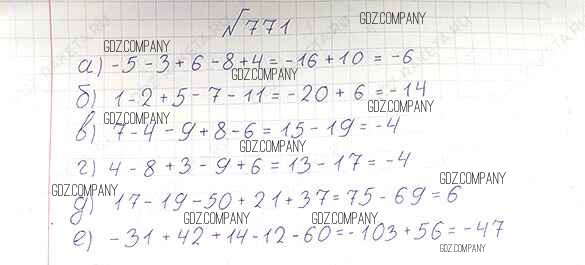 №771
GDZ.COMPANY
GDZ.COMPANY
а) -5-3+6-8+4=-16+10=-6
GDZ.COMPANY
б) 1-2+5-7-11=-20+6=-14
GDZ.COMPANY
GDZ.COMPANY
в) 7-4-9+8-6=15-19=-4
GDZ.COMPANY
г) 4-8+3-9+6=13-17=-4
GDZ.COMPANY
GDZ.COMPANY
д) 17-19-50+21+37=75-69=6
GDZ.COMPANY
GDZ.COMPANY
е) -31+42+14-12-60=-103+56=-47
GDZ.COMPANY